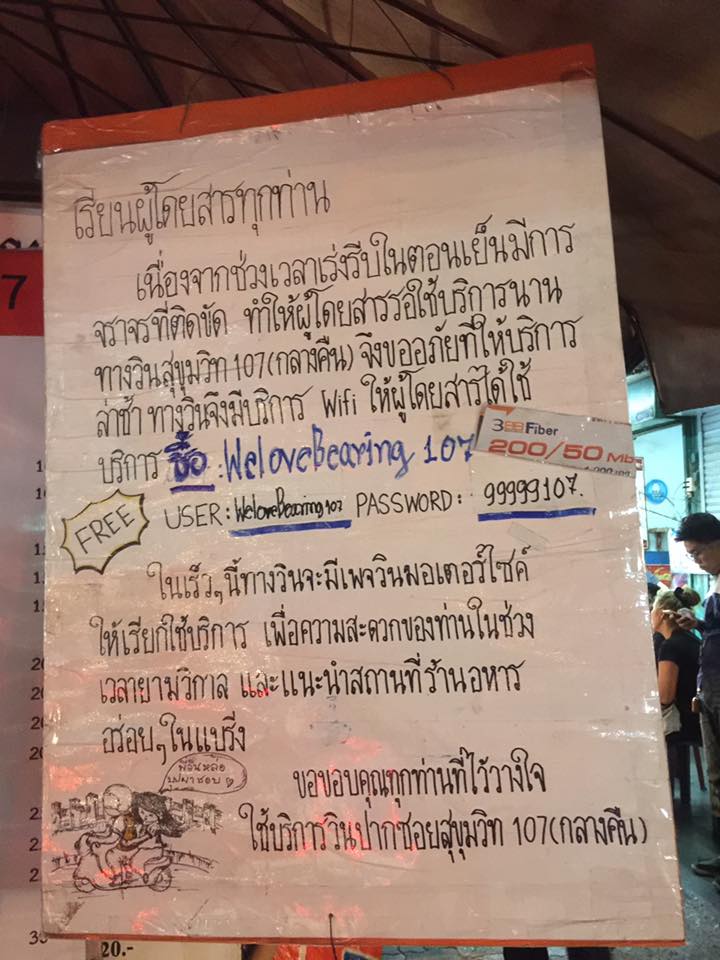 เรียนผู้โดยสารทุกท่าน
เนื่องจากช่วงเวลาเร่งรีบในตอนเย็นมีการ
จราจรที่ติดขัด ทำให้ผู้โดยสารรอใช้บริการนาน
ทางวินสุขุมวิท 107(กลางคืน) จึงขออภัยที่ให้บริการ
ล่าช้า ทางวินจึงมีบริการ Wifi ให้ผู้โดยสารได้ใช้
บริการ ชื่อ : WeloveBearing 107
399 Fiber
200/50 Mb
FREE
USER: WeloveBearing107 PASSWORD: 99999107.
ในเร็วๆนี้ทางวินจะมีเพจวินมอเตอร์ไซค์
ให้เรียกใช้บริการ เพื่อความสะดวกของท่านในช่วง
เวลายามวิกาล และแนะนำสถานที่ร้านอาหาร
อร่อยๆในแบริ่ง
พี่วินหล่อ
บุปผาชอบ
ขอขอบคุณทุกท่านที่ไว้วางใจ
ใช้บริการวินปากซอยสุขุมวิท 107(กลางคืน)
7
20.-